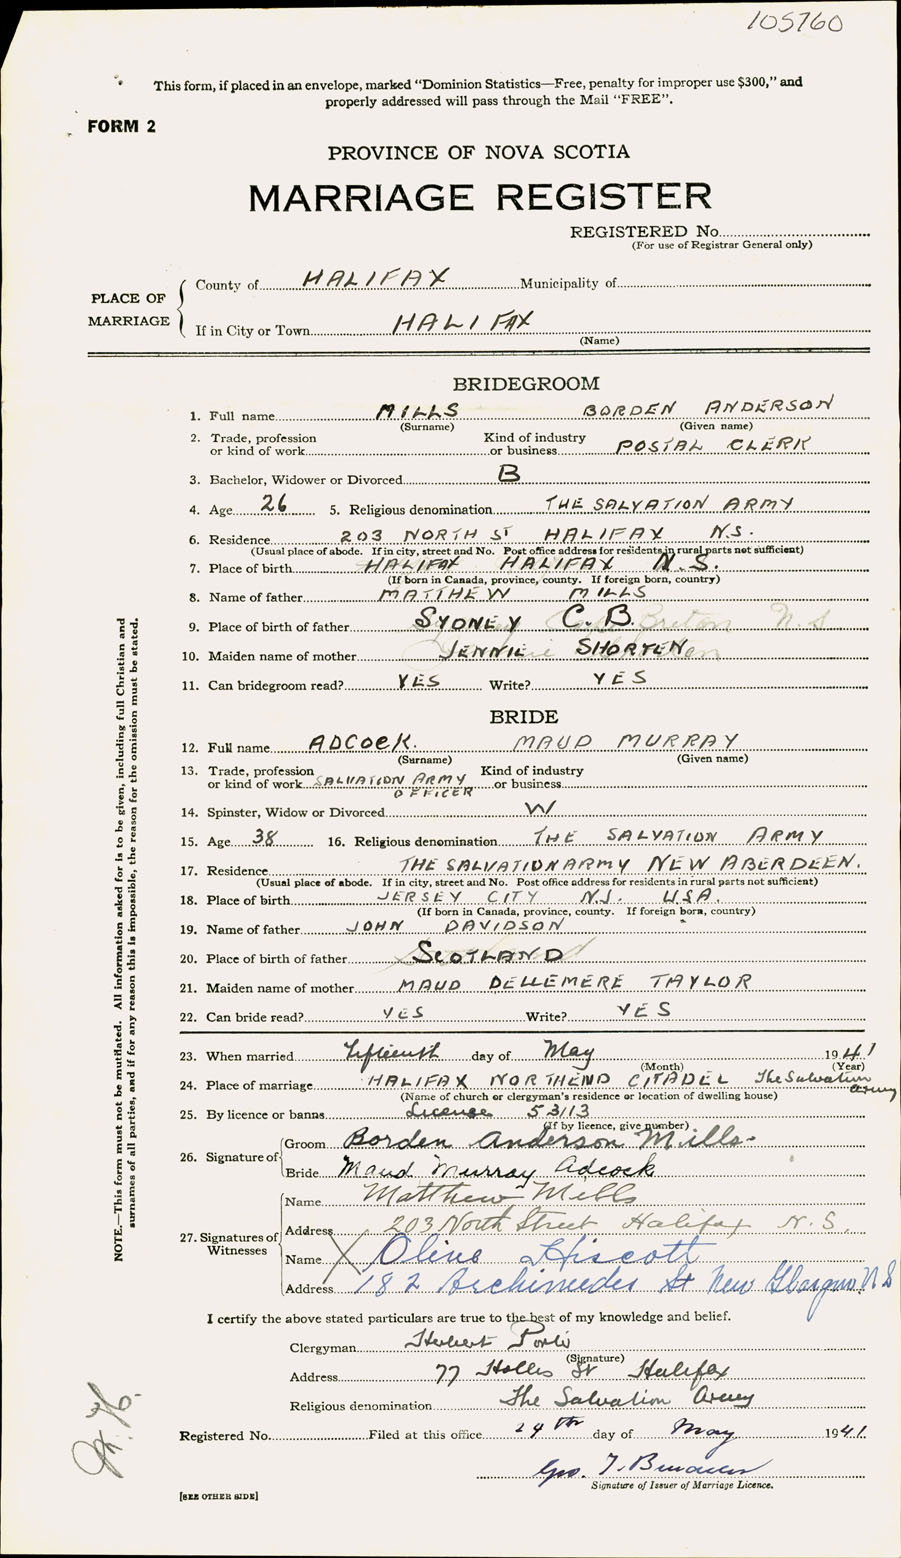 105760
This form, if placed in an envelope, marked “Dominion Statistics—Free, penalty for improper use $300,” and
properly addressed will pass through the Mail “FREE”.
FORM 2
PROVINCE OF NOVA SCOTIA
MARRIAGE REGISTER
REGISTERED No.
(For use of Registrar General only)
PLACE OF MARRIAGE
County of HALIFAX Municipality of
If in City or Town HALIFAX
(Name)
BRIDEGROOM
1. Full name MILLS BORDEN ANDERSON
(Surname) (Given name)
2. Trade, profession or kind of work Kind of industry or business POSTAL CLERK
3. Bachelor, Widower or Divorced B
4. Age 26 5. Religious denomination THE SALVATION ARMY
6. Residence 203 NORTH ST HALIFAX N.S.
(Usual place of abode. If in city, street and No. Post office address for residents in rural parts not sufficient)
7. Place of birth HALIFAX HALIFAX N.S.
(If born in Canada, province, county. If foreign born, country)
8. Name of father MATTHEW MILLS
9. Place of birth of father SYDNEY C.B.
10. Maiden name of mother JENNIE SHORTEN
11. Can bridegroom read? YES Write? YES
BRIDE
12. Full name ADCOCK. MAUD MURRAY
(Surname) (Given name)
13. Trade, profession or kind of work SALVATION ARMY OFFICER Kind of industry or business
14. Spinster, Widow or Divorced W
15. Age 38 16. Religious denomination THE SALVATION ARMY
17. Residence THE SALVATION ARMY NEW ABERDEEN.
(Usual place of abode. If in city, street and No. Post office address for residents in rural parts not sufficient)
18. Place of birth JERSEY CITY N.J. USA.
(If born in Canada, province, county. If foreign born, country)
19. Name of father JOHN DAVIDSON
20. Place of birth of father SCOTLAND
21. Maiden name of mother MAUD DELLEMERE TAYLOR
22. Can bride read? YES Write? YES
23. When married Fifteenth day of May 1941
(Month) (Year)
24. Place of marriage HALIFAX NORTHEND CITADEL The Salvation Army
(Name of church or clergyman's residence or location of dwelling house)
25. By licence or banns License 53113
(If by licence, give number)
26. Signature of
Groom Borden Anderson Mills
Bride Maud Murray Adcock
27. Signatures of Witnesses
Name Matthew Mills
Address 203 North Street Halifax N.S.
Name Olive Hiscott
Address 182 Archimedes St New Glasgow N S
I certify the above stated particulars are true to the best of my knowledge and belief.
Clergyman Herbert
(Signature)
Address 77 Hollis St Halifax
Religious denomination The Salvation Army
Registered No. Filed at this office 24th day of May 1941.
Geo. T.
Signature of Issuer of Marriage Licence.
[SEE OTHER SIDE]
NOTE.—This form must not be mutilated. All information asked for is to be given, including full Christian and
surnames of all parties, and if for any reason this is impossible, the reason for the omission must be stated.